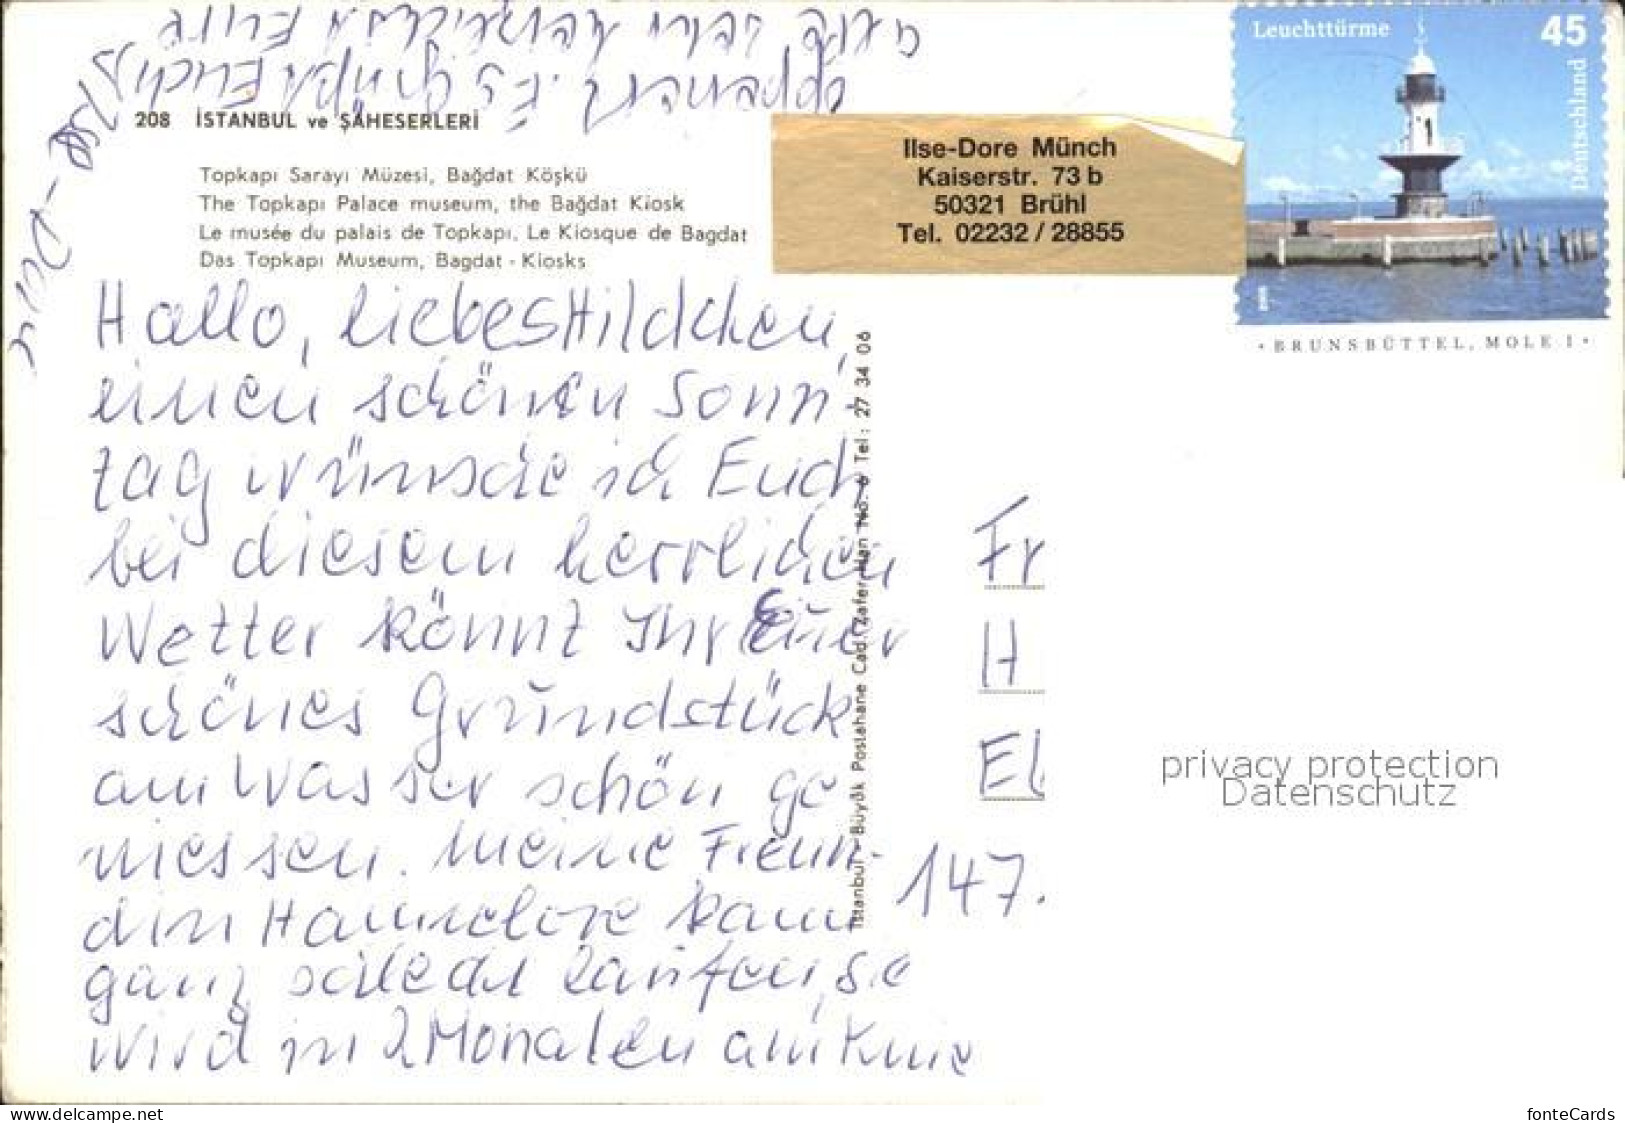 208 İSTANBUL ve ŞÂHESERLERİ
Topkapı Sarayı Müzesi, Bağdat Köşkü
The Topkapı Palace museum, the Bağdat Kiosk
Le musée du palais de Topkapı, Le Kiosque de Bagdat
Das Topkapı Museum, Bagdat - Kiosks
Hallo, liebes Hildchen,
einen schönen Sonn-
tag wünsche ich Euch
bei diesem herrlichen
Wetter könnt Ihr Euer
schönes Grundstück
am Wasser schön ge
niessen. Meine Freun-
din Hannelore kann
ganz schlecht laufen, se
wird in 2 Monaten am Knie
operiert. Es grüßt Euch
Eure
Ilse-Dore Münch
Kaiserstr. 73 b
50321 Brühl
Tel. 02232 / 28855
Leuchttürme 45
Deutschland
• BRUNSBÜTTEL, MOLE 1 •
İstanbul - Büyük Postahane Cad. Zafer Han No. 6 Tel : 27 34 06
Fr
H
El
147.
privacy protection
Datenschutz
www.delcampe.net
fonteCards